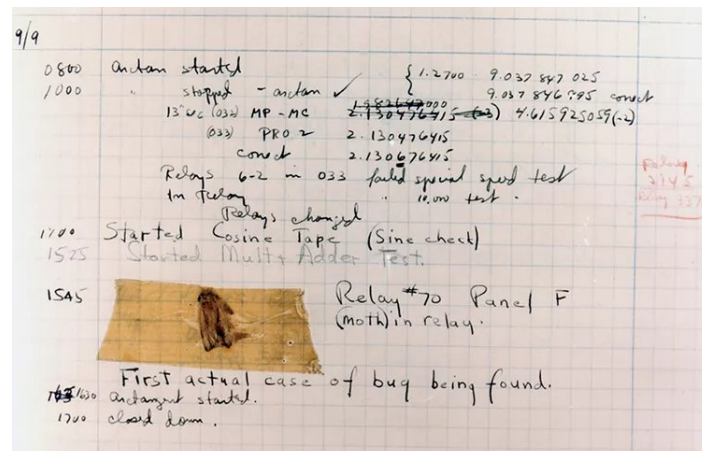 9/9
0800 arctan started { 1.2700 9.037 847 025
1000 " stopped - arctan ✓ 9.037 846 995 correct
13"uc (032) MP - MC 1.982647000 2.130476415 (-3) 4.615925059(-2)
(033) PRO 2 2.130476415
correct 2.130676415
Relays 6-2 in 033 failed special speed test
In Relay " 10.000 test.
Relay 2145
Relay 337
Relays changed
1700 Started Cosine Tape (Sine check)
1525 Started Mult + Adder Test.
1545 Relay #70 Panel F
(moth) in relay.
First actual case of bug being found.
1630 arctangent started.
1700 closed down.